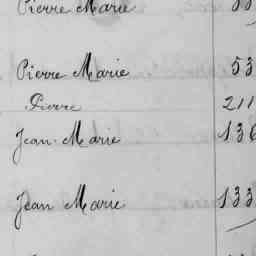 Pierre Marie
Pierre Marie 53
Pierre 211
Jean-Marie 136
Jean Marie 133